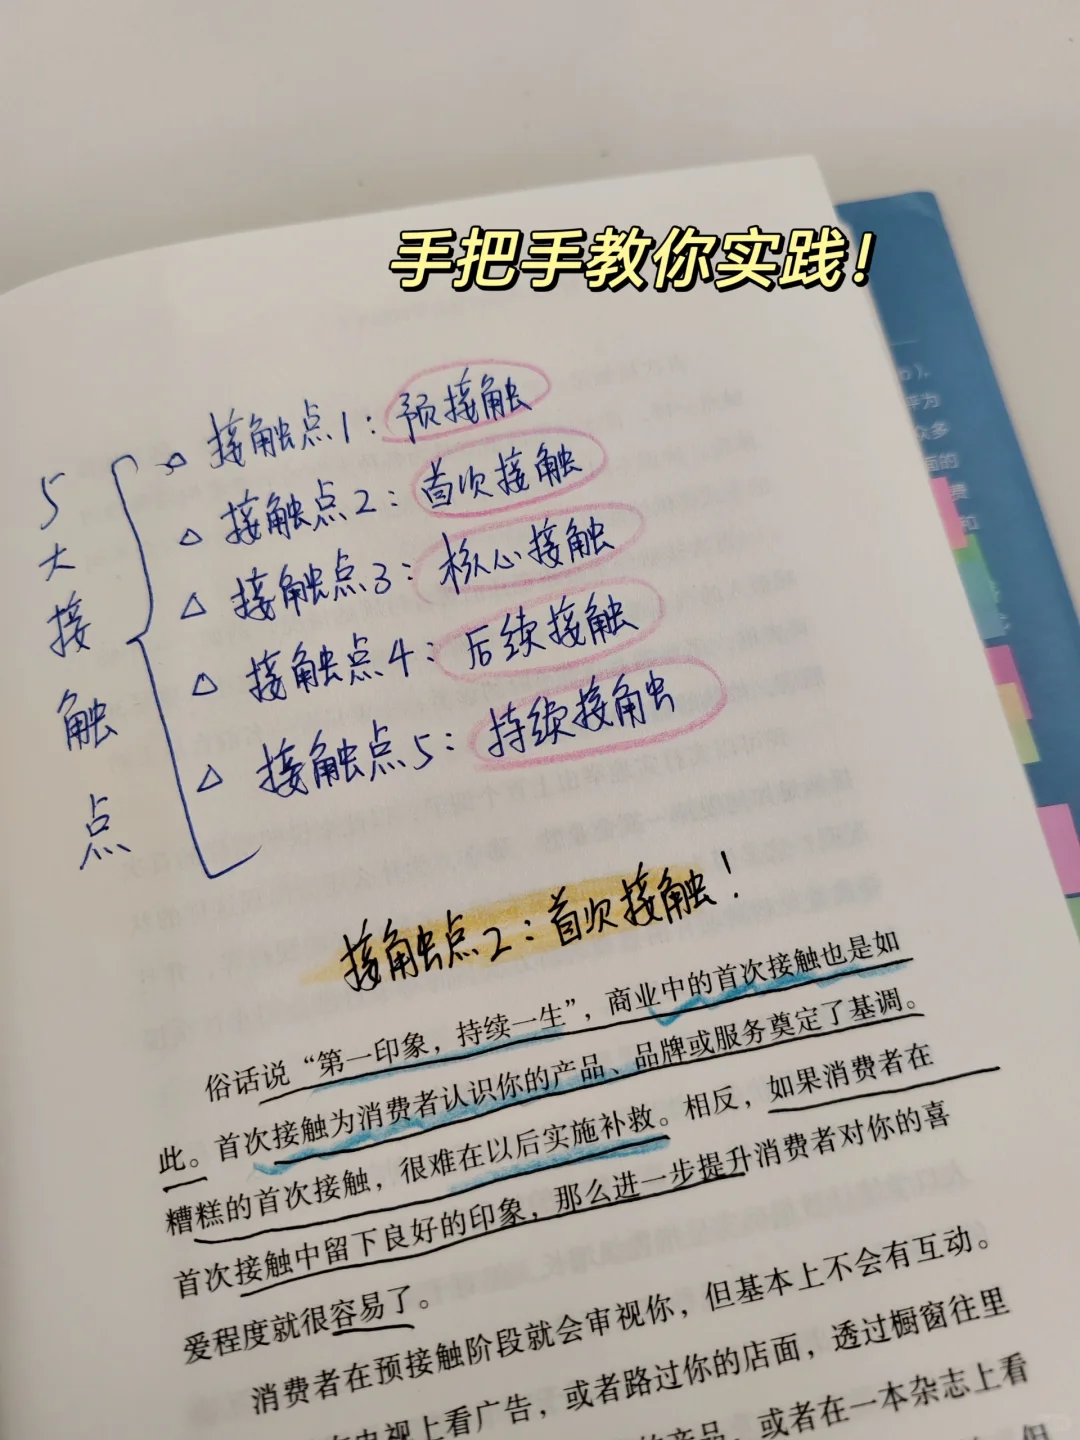 手把手教你实践！
5大接触点
接触点1：预接触
接触点2：首次接触
接触点3：核心接触
接触点4：后续接触
接触点5：持续接触
接触点2：首次接触！
俗话说“第一印象，持续一生”，商业中的首次接触也是如
此。首次接触为消费者认识你的产品、品牌或服务奠定了基调。
糟糕的首次接触，很难在以后实施补救。相反，如果消费者在
首次接触中留下良好的印象，那么进一步提升消费者对你的喜
爱程度就很容易了。
消费者在预接触阶段就会审视你，但基本上不会有互动。
在电视上看广告，或者路过你的店面，透过橱窗往里
的产品，或者在一本杂志上看
但
评为
众多
面的
和